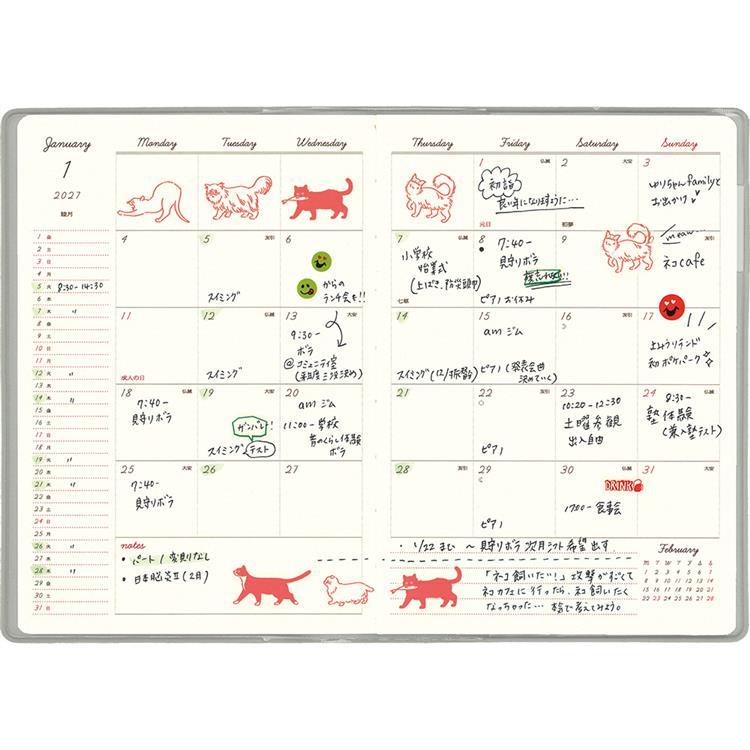 January
1
2027
睦月
1 金
2 土
3 日
4 月
5 火 8:30-14:30
6 水
7 木 〃
8 金
9 土
10 日
11 月
12 火 〃
13 水
14 木 〃
15 金
16 土
17 日
18 月
19 火 〃
20 水
21 木 〃
22 金
23 土
24 日
25 月
26 火 〃
27 水
28 木 〃
29 金
30 土
31 日
Monday Tuesday Wednesday Thursday Friday Saturday Sunday
1 仏滅
初詣
良い年になりますように…
元日
2 大安
初夢
3
ゆりちゃんfamilyと
お出かけ
4
5 友引
スイミング
6
からの
ランチ会を!!
7
小学校
始業式
(上ばき、防災頭巾)
七草
8
7:40-
見守りボラ
ピアノお休み
9
meow…
ネコcafe
11
成人の日
12
スイミング
13 大安
9:30-
ボラ
@コミュニティ室
14
スイミング
15
amジム
ピアノ(発表会曲
決めていく)
16
17
よみうりランド
初ポケパーク
18 仏滅
7:40-
見守りボラ
19 大安
ガンバレ!
スイミング テスト
20
amジム
11:00-学校
昔のくらし体験
ボラ
21
22
ピアノ
23 友引
10:20-12:30
土曜参観
出入自由
24 仏滅
8:30-
塾 体験
(兼入塾テスト)
25 大安
7:40-
見守りボラ
26
27
28 友引
29
ピアノ
30 仏滅
DRINK
17:00-食事会
31 大安
notes
・パート/変則なし
・1/22まで〜見守りボラ次月シフト希望出す
「ネコ飼いたい!」攻撃がすごくて
ネコカフェに行ったら、ネコ飼いたく
なっちゃった…本当で考えてみよう。
February
M T W T F S S
1 2 3 4 5 6 7
8 9 10 11 12 13 14
15 16 17 18 19 20 21
22 23 24 25 26 27 28